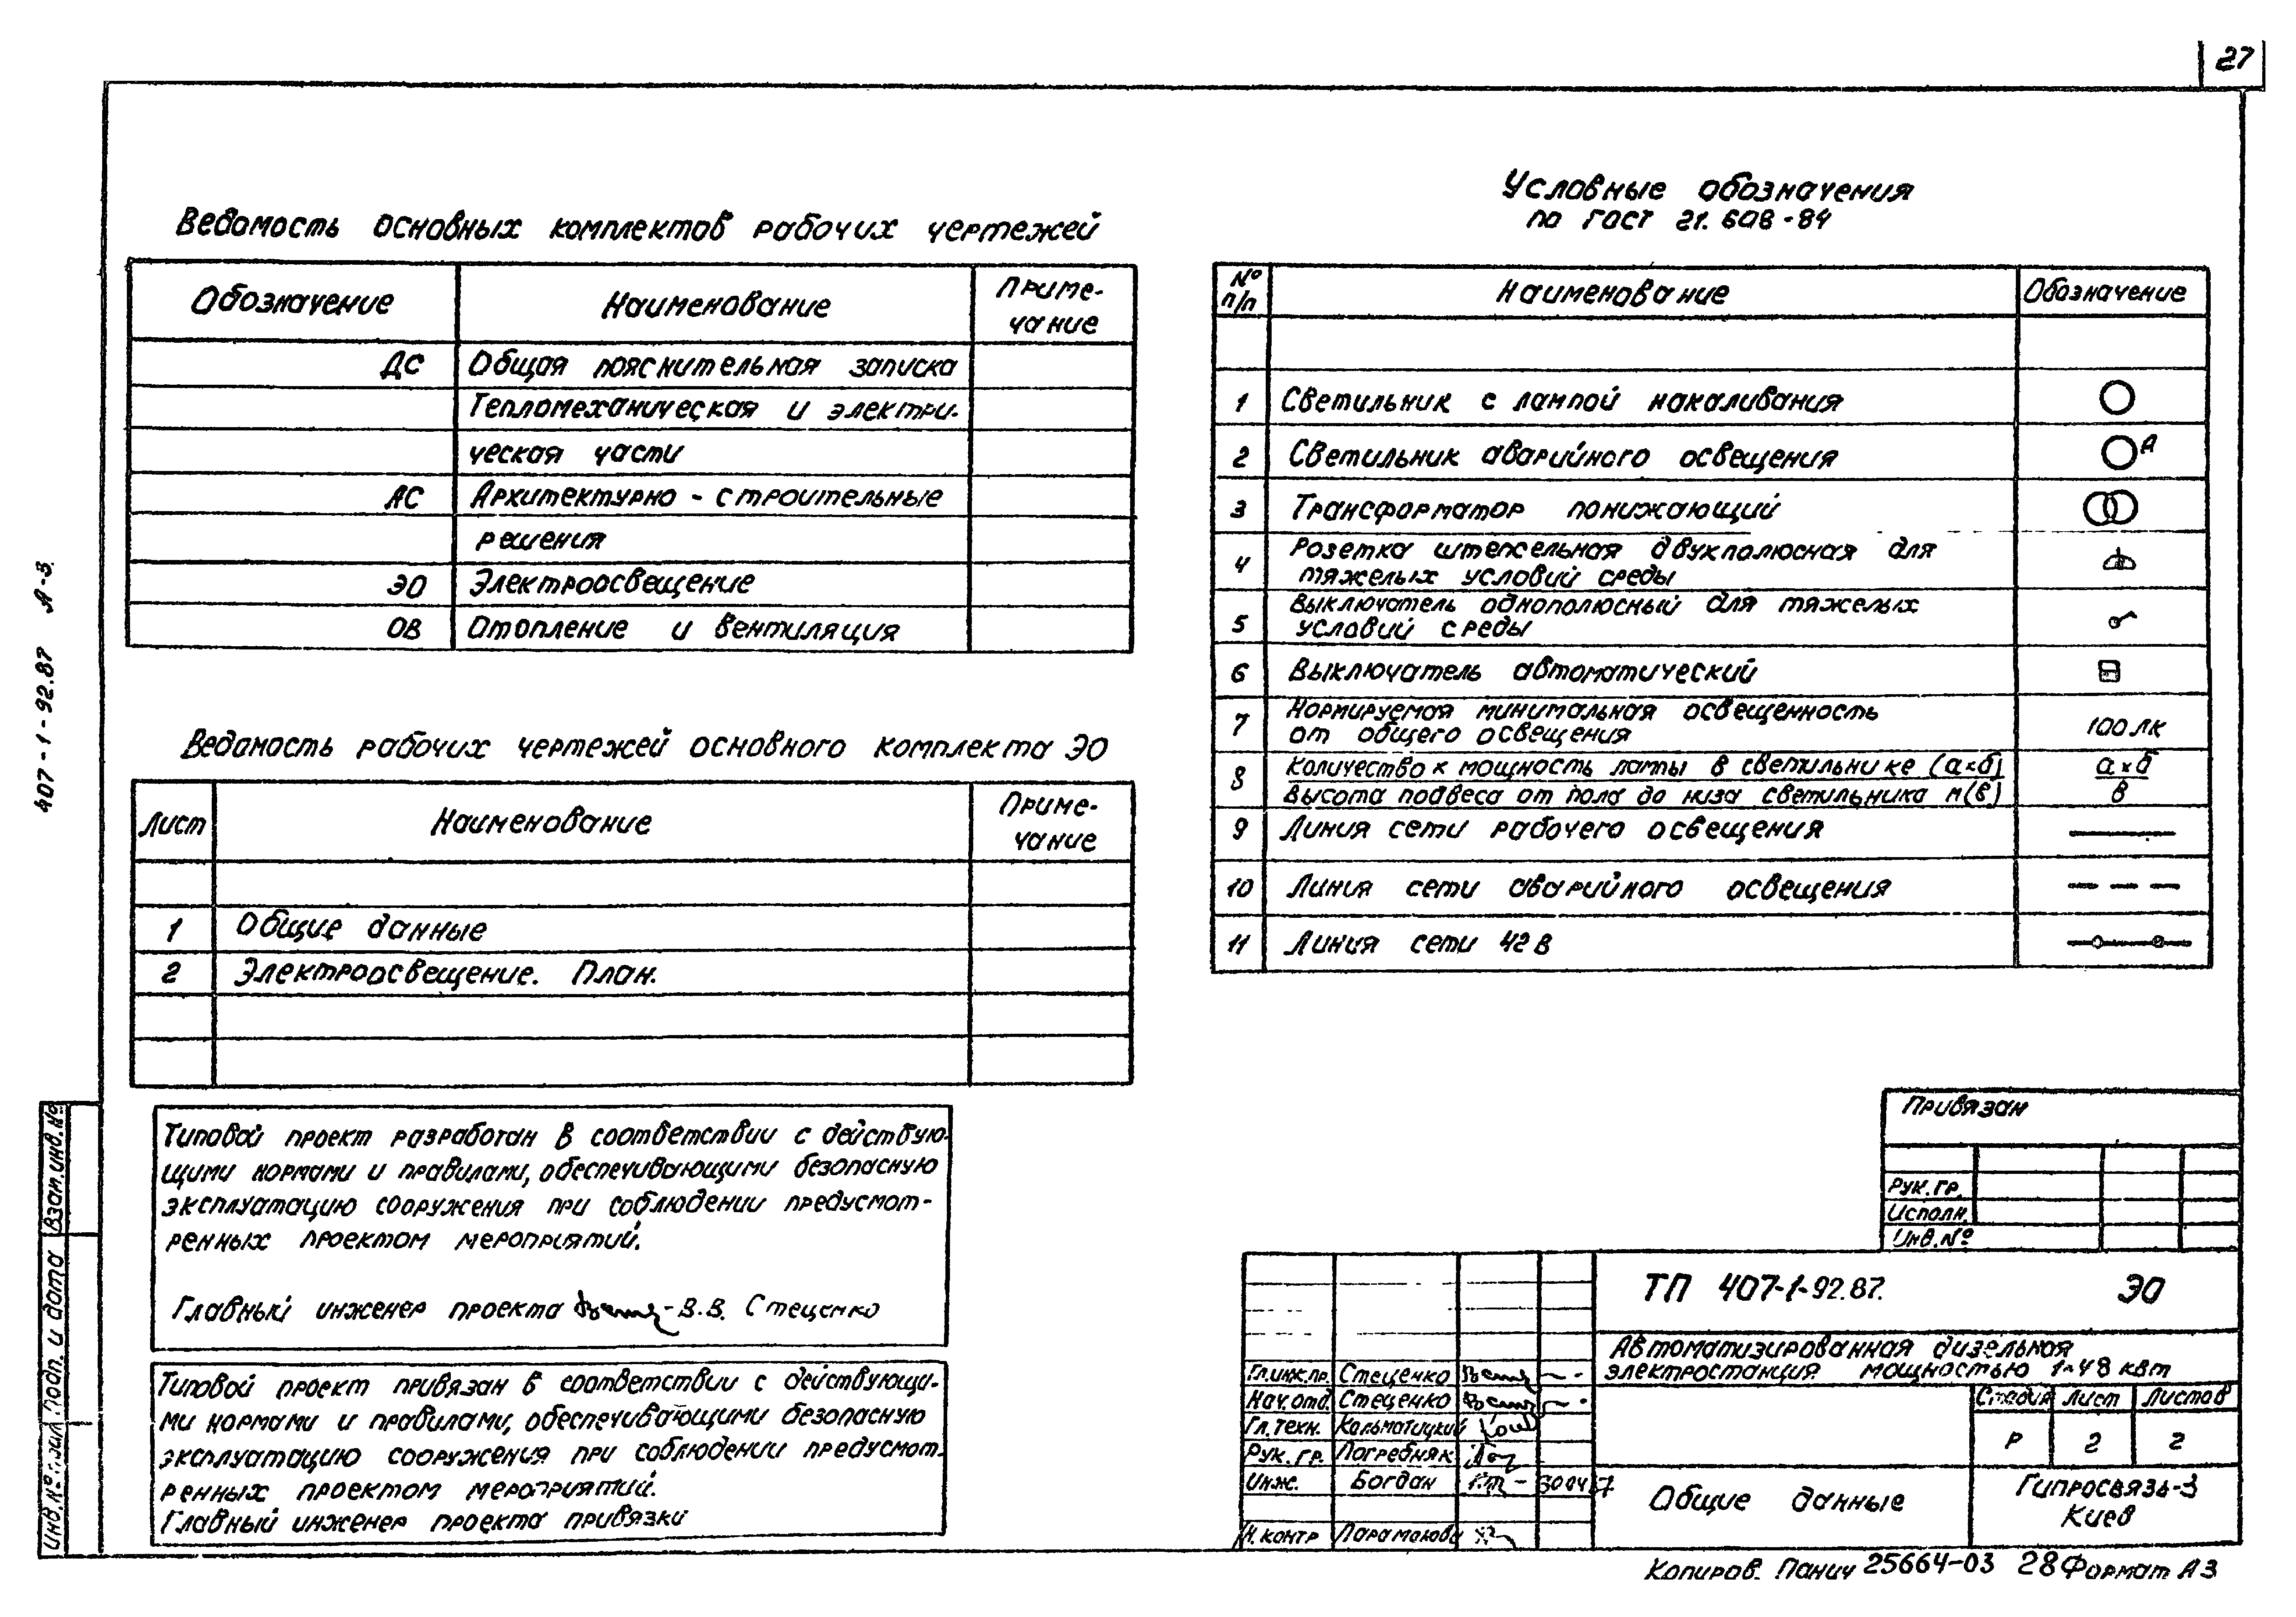 27
Ведомость основных комплектов рабочих чертежей
Обозначение Наименование Приме-
чание
ДС Общая пояснительная записка
Тепломеханическая и электри-
ческая части
АС Архитектурно - строительные
решения
ЭО Электроосвещение
ОВ Отопление и вентиляция
Ведомость рабочих чертежей основного комплекта ЭО
Лист Наименование Приме-
чание
1 Общие данные
2 Электроосвещение. План.
Типовой проект разработан в соответствии с действую-
щими нормами и правилами, обеспечивающими безопасную
эксплуатацию сооружения при соблюдении предусмот-
ренных проектом мероприятий.
Главный инженер проекта В.В. Стеценко
Типовой проект привязан в соответствии с действующи-
ми нормами и правилами, обеспечивающими безопасную
эксплуатацию сооружения при соблюдении предусмот-
ренных проектом мероприятий.
Главный инженер проекта привязки
Условные обозначения
по ГОСТ 21.608-84
№
п/п Наименование Обозначение
1 Светильник с лампой накаливания
2 Светильник аварийного освещения А
3 Трансформатор понижающий
4 Розетка штепсельная двухполюсная для
тяжелых условий среды
5 Выключатель однополюсный для тяжелых
условий среды
6 Выключатель автоматический
7 Нормируемая минимальная освещенность
от общего освещения 100 лк
8 Количество х мощность лампы в светильнике (а×б) а×б
Высота подвеса от пола до низа светильника м(в) в
9 Линия сети рабочего освещения
10 Линия сети аварийного освещения
11 Линия сети 42 в
Привязан
Рук. гр.
Исполн.
Инв. №
ТП 407-1-92.87. ЭО
Автоматизированная дизельная
электростанция мощностью 1×48 квт
Гл.инж.пр. Стеценко
Нач.отд. Стеценко
Гл. техн. Кальматицкий
Рук. гр. Погребняк
Инж. Богдан
Н.контр
Стадия Лист Листов
Р 2 2
Общие данные
Гипросвязь-3
Киев
Копиров. Панич 25664-03 28 Формат А3
407-1-92.87 А-3.
Взап.инв.№
Подп. и дата
Инв.№ подл